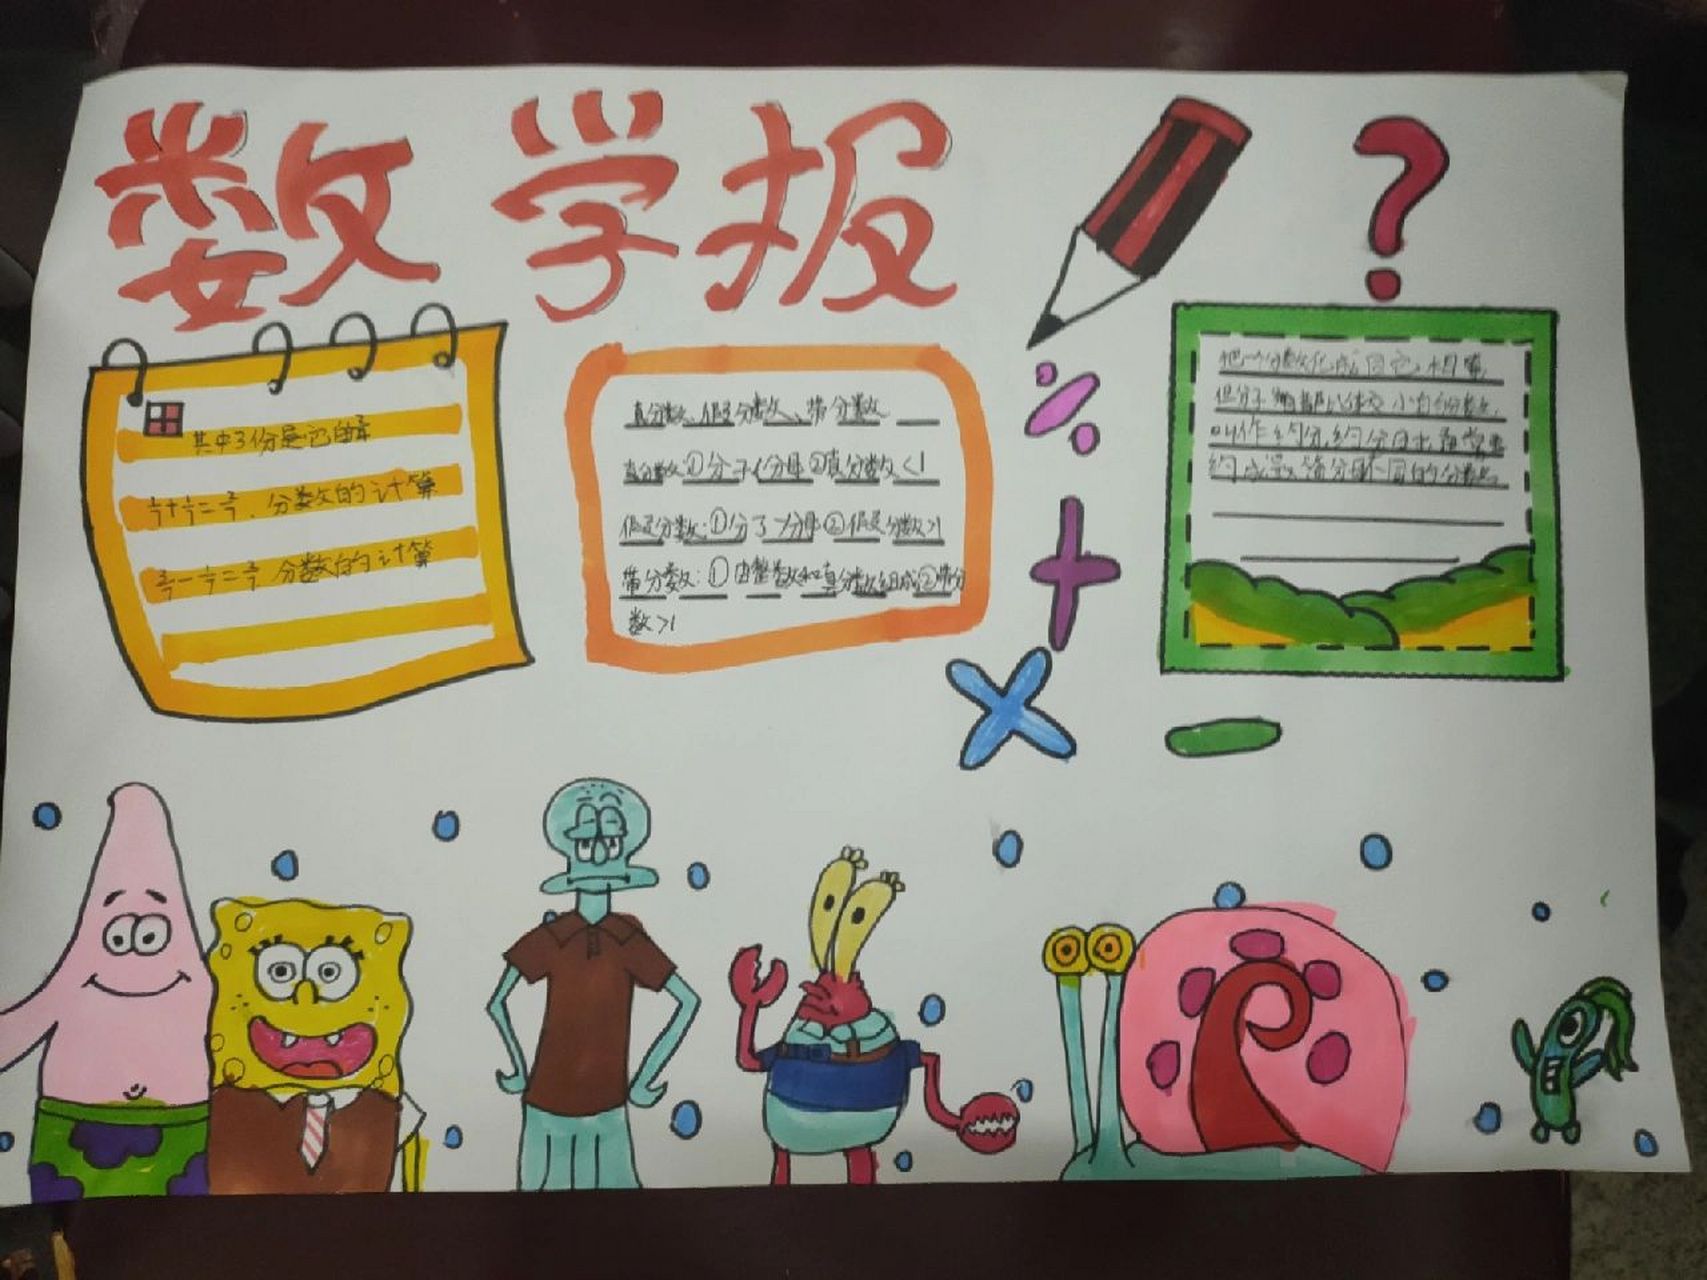 数学报
其中3份是它的¾
分数的计算
分数的计算
真分数、假分数、带分数
真分数:①分子<分母②真分数<1
假分数:①分子>分母②假分数>1
带分数:①由整数和真分数组成②带分
数>1
把一个分数化成同它相等
但分子分母都比较小的分数,
叫作约分,约分时
约成分母不同的分数